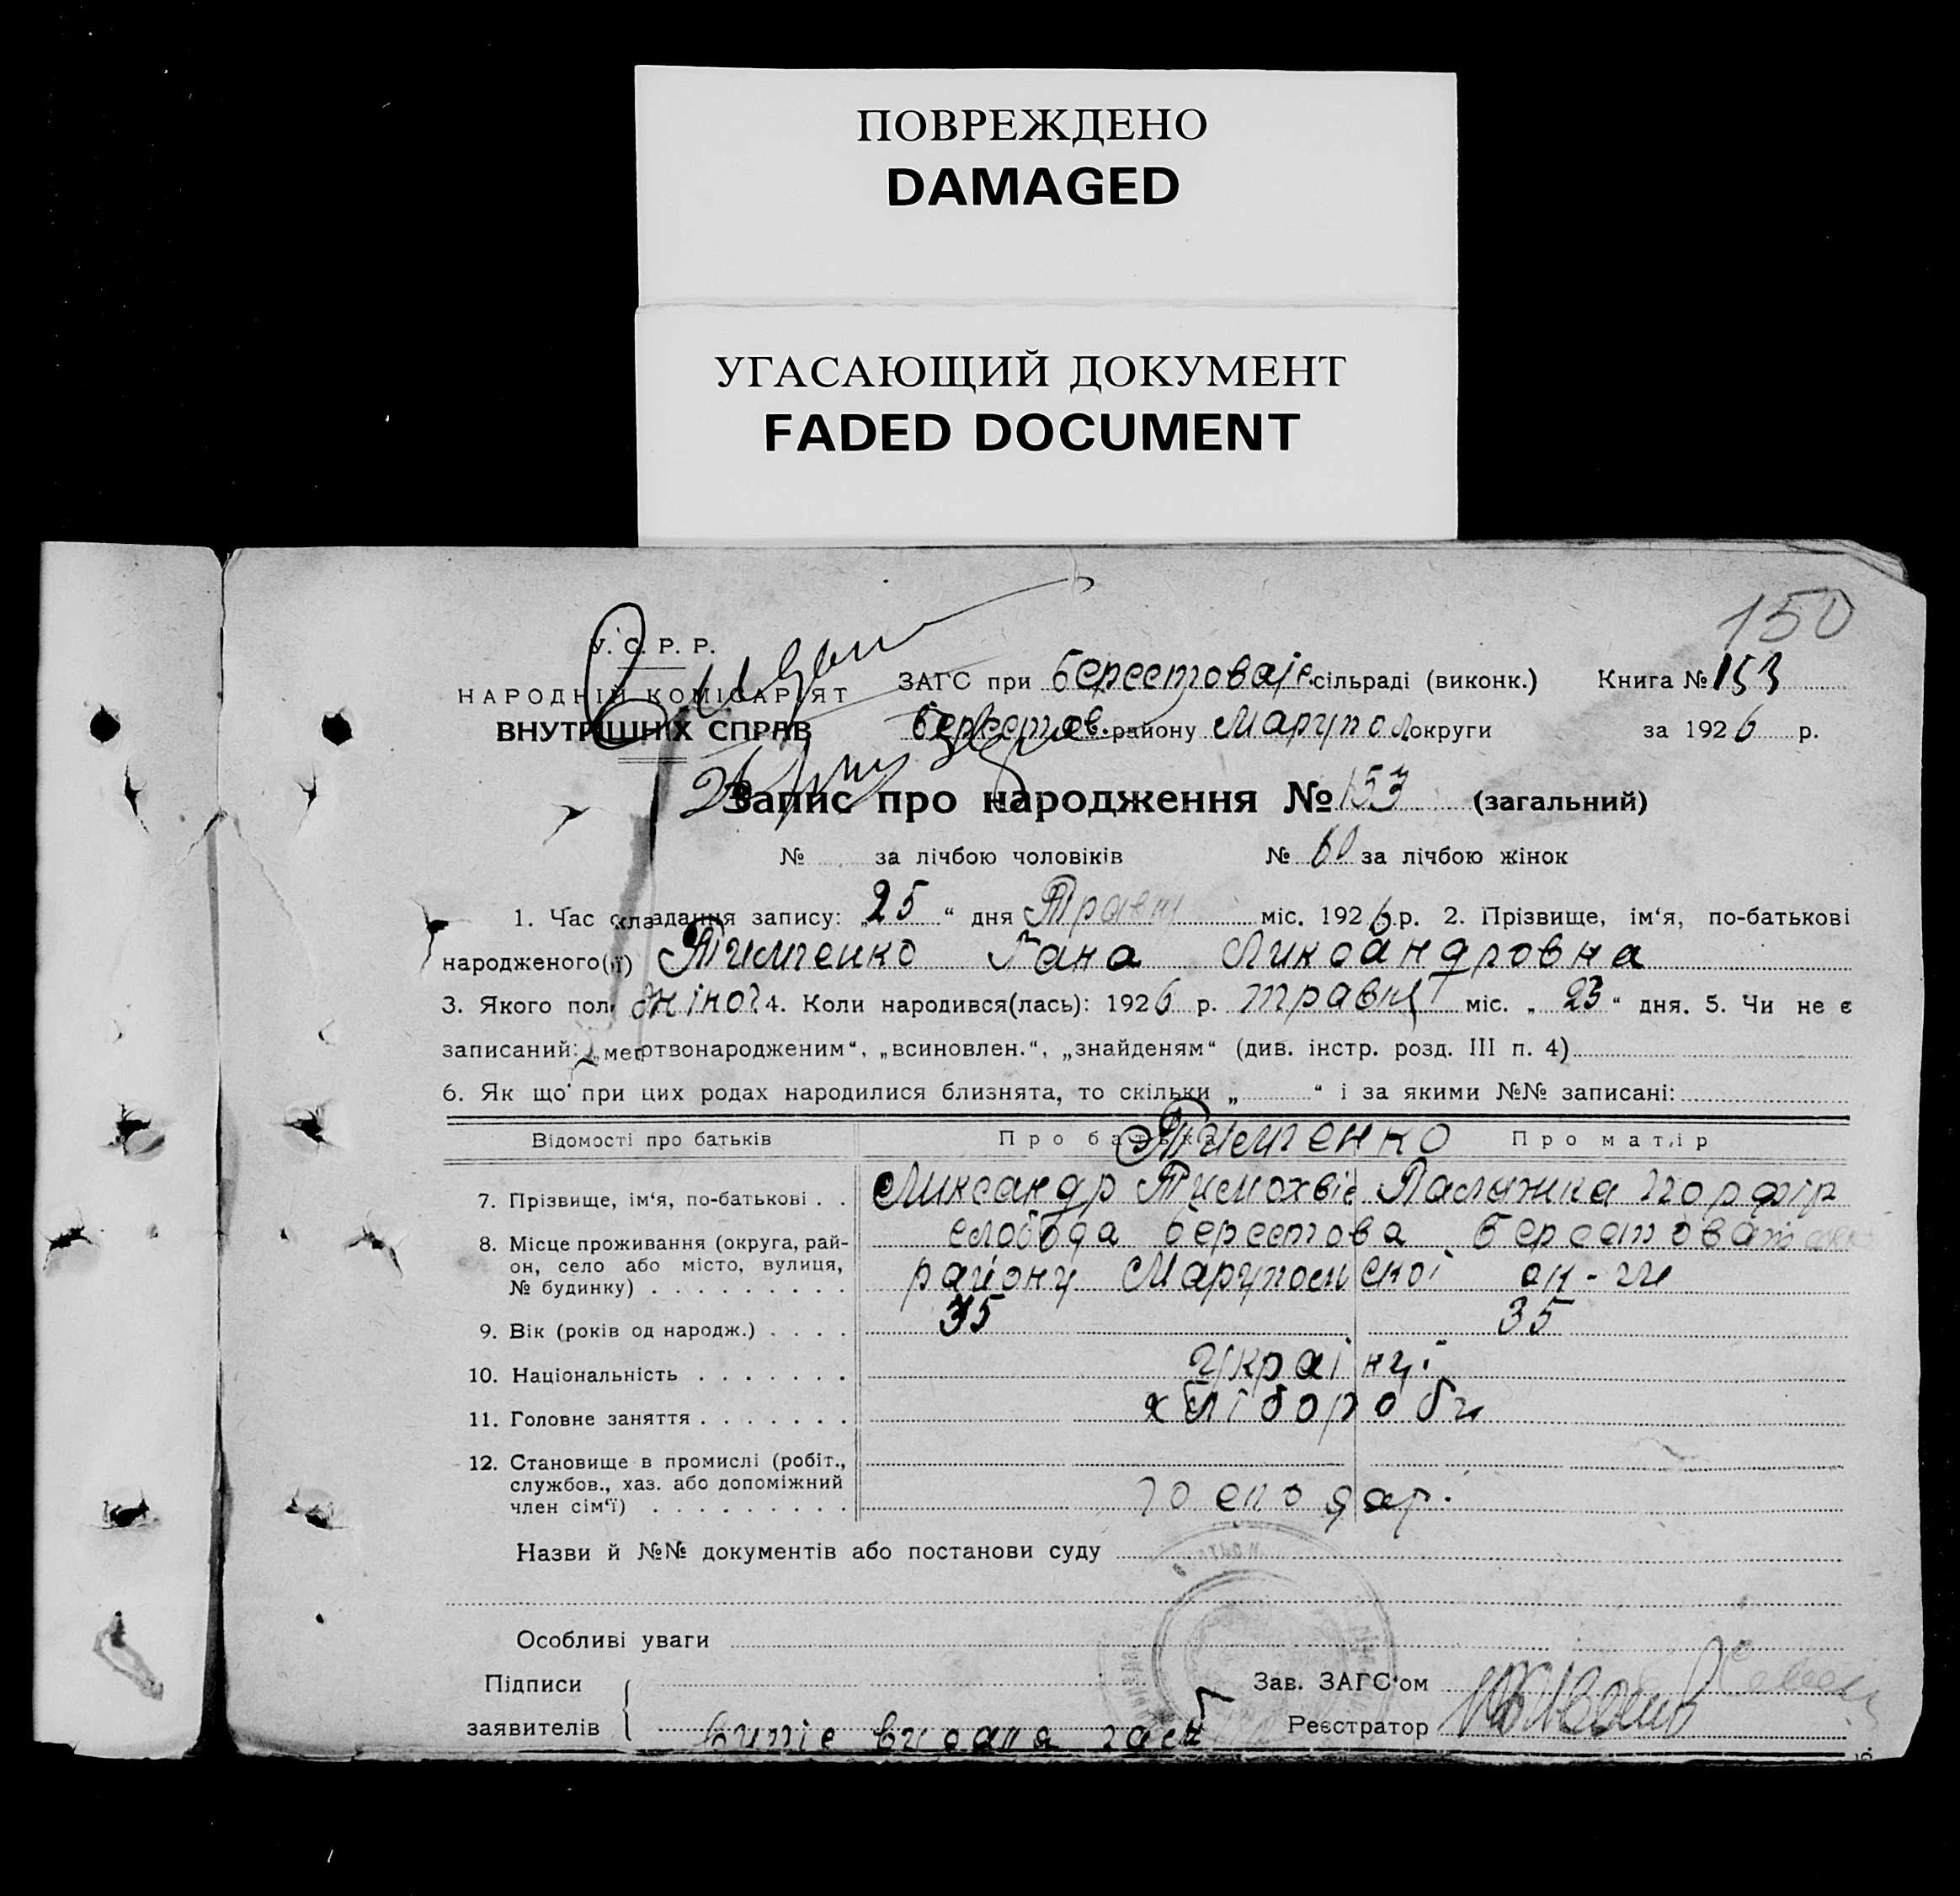 ПОВРЕЖДЕНО
DAMAGED
УГАСАЮЩИЙ ДОКУМЕНТ
FADED DOCUMENT
150
У. С. Р. Р.
НАРОДНІЙ КОМІСАРІЯТ
ВНУТРІШНІХ СПРАВ
ЗАГС при сільраді (виконк.) Книга № 153
Берестов. району Маріупол округи за 1926 р.
Запис про народження № 153 (загальний)
№ за лічбою чоловіків № 60 за лічбою жінок
1. Час складання запису: „25“ дня Травн міс. 1926 р. 2. Прізвище, ім‘я, по-батькові
народженого(ї) Тимченко Гана Ликсандровна
3. Якого пол жіноч 4. Коли народився(лась): 1926 р. травня міс. „23“ дня. 5. Чи не є
записаний: „мертвонародженим“, „всиновлен.“, „знайденям“ (див. інстр. розд. III п. 4)
6. Як що при цих родах народилися близнята, то скільки „ “ і за якими №№ записані:
Відомості про батьків Про батька Про матір
Тимченко
7. Прізвище, ім‘я, по-батькові . . Ликсандр Тимохвіє Палажка Порфір
8. Місце проживання (округа, рай-
он, село або місто, вулиця,
№ будинку) слобода Берестова
району Маріупольскої ок-ги
9. Вік (років од народж.) 35 35
10. Національність Українці
11. Головне заняття хлібороби
12. Становище в промислі (робіт.,
службов., хаз. або допоміжний
член сім‘ї) господар.
Назви й №№ документів або постанови суду
Особливі уваги
Підписи
заявителів
Зав. ЗАГС‘ом
Реєстратор